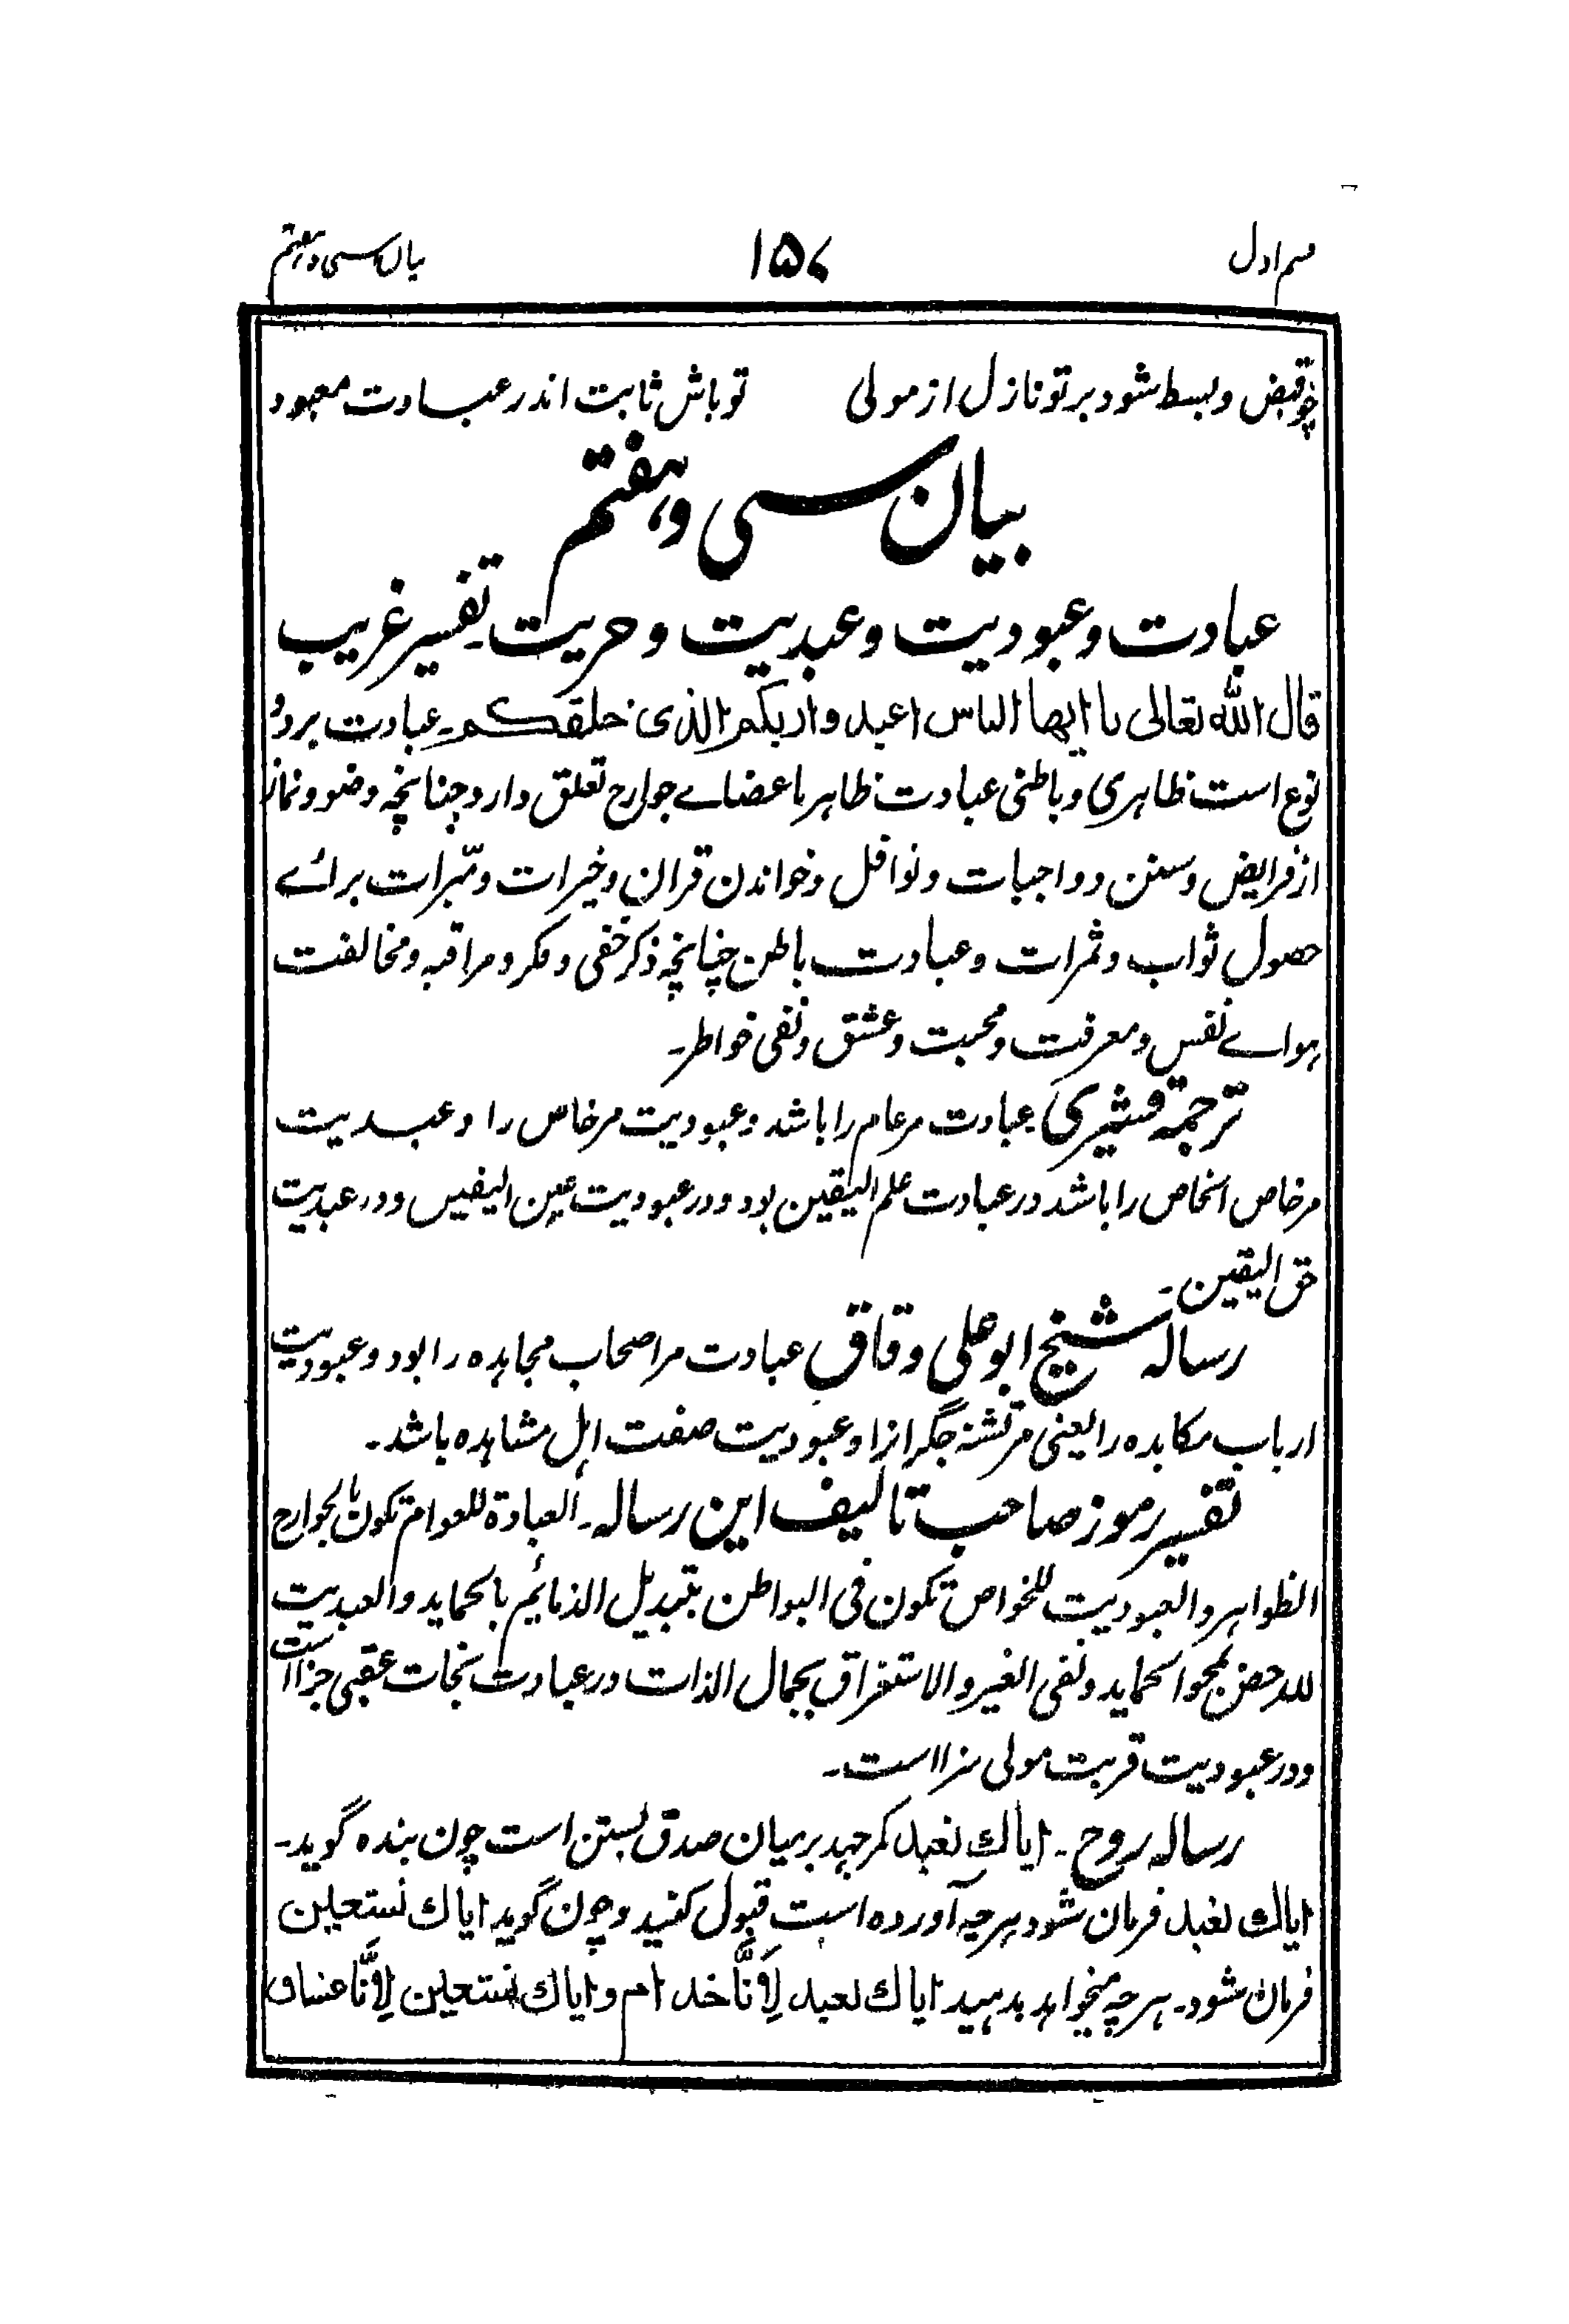 قسم اول ۱۵۷ بیان سی و ہفتم
چو قبض و بسط شود بر تو نازل از مولی تو باش ثابت اندر عبادت معہود
بیان سی و ہفتم
عبادت و عبودیت و عبدیت و حریت۔ تفسیر غریب
قال اللہ تعالی یا ایھا الناس اعبدوا ربکم الذی خلقکم۔ عبادت بر دو
نوع است ظاہری و باطنی عبادت ظاہر باعضاے جوارح تعلق دارد چنانچہ وضو و نماز
از فرایض و سنن و واجبات و نوافل و خواندن قران و خیرات و مبرات برائے
حصول ثواب و ثمرات و عبادت باطن چنانچہ ذکر خفی و فکر و مراقبہ و مخالفت
ہواے نفس و معرفت و محبت و عشق و نفی خواطر۔
ترجمۃ قشیری عبادت مر عام را باشد و عبودیت مر خاص را و عبدیت
مر خاص الخاص را باشد در عبادت علم الیقین بود و در عبودیت عین الیقین و در عبدیت
حق الیقین۔
رسالہ شیخ ابو علی وقاق عبادت مر اصحاب مجاہدہ را بود و عبودیت
ارباب مکابدہ را یعنی مر تشنہ جگرانرا و عبودیت صفت اہل مشاہدہ باشد۔
تفسیر رموز صاحب تالیف این رسالہ۔ العبادۃ للعوام تکون بالجوارح
الظواہر و العبودیت للخواص تکون فی البواطن بتبدیل الذمائم بالحماید و العبدیت
بمحو الحماید و نفی الغیر و الاستغراق بجمال الذات در عبادت نجات عقبی جزا است
و در عبودیت قربت مولی سزا است۔
رسالہ روح۔ ایاك نعبد کمر جہد بر میان صدق بستن است چون بندہ گوید۔
ایاك نعبد فرمان شود ہر چہ آوردہ است قبول کنید و چون گوید ایاك نستعین
فرمان شود۔ ہر چہ میخواہد بدہید ایاك نعبد لِاَنَّا خدام و ایاك نستعین لِاَنَّا